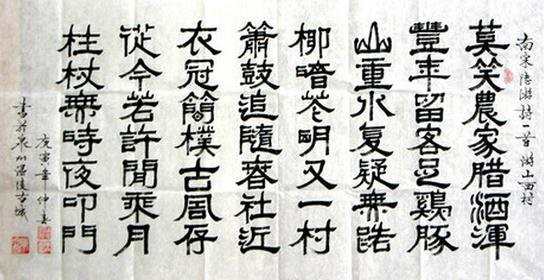 南宋陸游詩一首 游山西村
莫笑農家腊酒渾
豐年留客足鷄豚
山重水复疑無路
柳暗花明又一村
簫鼓追隨春社近
衣冠簡樸古風存
從今若許閒乘月
拄杖無時夜叩門
庚寅年仲春
書於泉州温陵古城